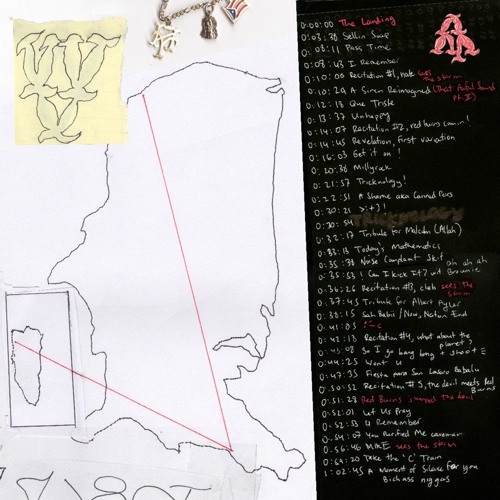 0:00:00 The Landing
0:03:38 Sellin Soap
0:08:11 Pass Time
0:08:43 I Remember
0:10:00 Recitation #1, nate sees the storm
0:10:29 A Siren Reimagined (That Awful Sound Pt. II)
0:12:18 Que Triste
0:13:37 Unhappy
0:14:07 Recitation #2, red burns comin!
0:14:45 Revelation, First variation
0:16:03 Get it on!
0:20:38 Millyrock
0:21:57 Tricknology!
0:22:51 A Shame aka Canned
0:30:21 >:+)!
0:30:54
0:32:17 Tribute for Malcolm (Allah)
0:33:13 Today's Mathematics
0:35:78 Noise Complaint Skit ah ah ah
0:35:53 ! Can I Kick It? wit Brownie
0:36:26 Recitation #3, sees the storm
0:37:45 Tribute for Albert Ayler
0:38:15 Sah Babii / Now, Nation End
0:41:05
0:42:13 Recitation #4, what about the planet?
So I go bang bong + shoot
0:44:25 Want U
0:47:35 Fiesta para San Lazaro Babalu
0:50:52 Recitation #5, the devil meets Red Burns
0:51:28 Red Burns the devil
0:52:01 Let Us Pray
0:52:53 U Remember
0:54:07 You Purified Me
0:56:46 sees the storm
0:64:20 Take the "C" Train
1:02:45 A Moment of Silence For you Bichass niggas